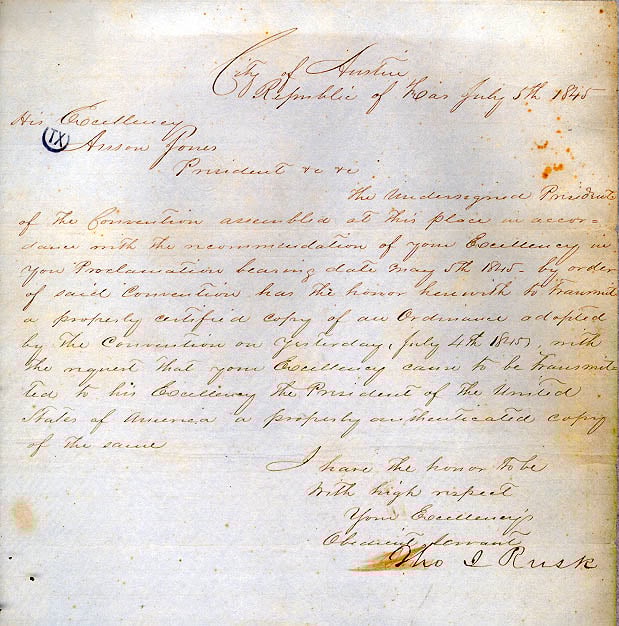 City of Austin
Republic of Texas July 5th 1845
His Excellency
TX
Anson Jones
President &c &c
The Undersigned President
of the Convention assembled at this place in accor=
dance with the recommendation of your Excellency in
your Proclamation bearing date May 5th 1845 - by order
of said Convention has the honor herewith to Transmit
a properly certified copy of an Ordinance adopted
by the Convention on Yesterday, (July 4th 1845), with
the request that your Excellency cause to be Transmit-
ted to his Excellency the President of the United
States of America a properly authenticated copy
of the same
I have the honor to be
With high respect
Your Excellency's
Obedient Servant
Tho J Rusk